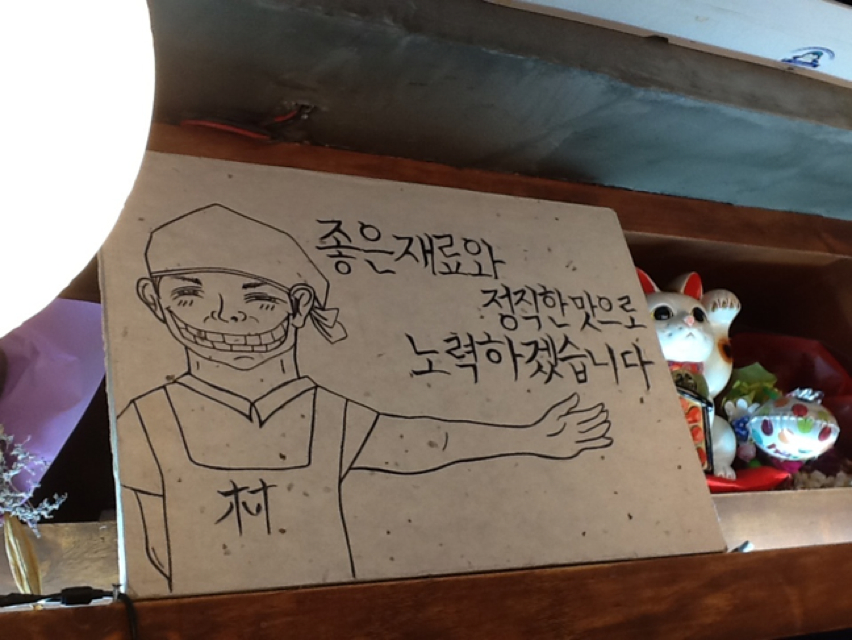 좋은재료와
정직한맛으로
노력하겠습니다
村